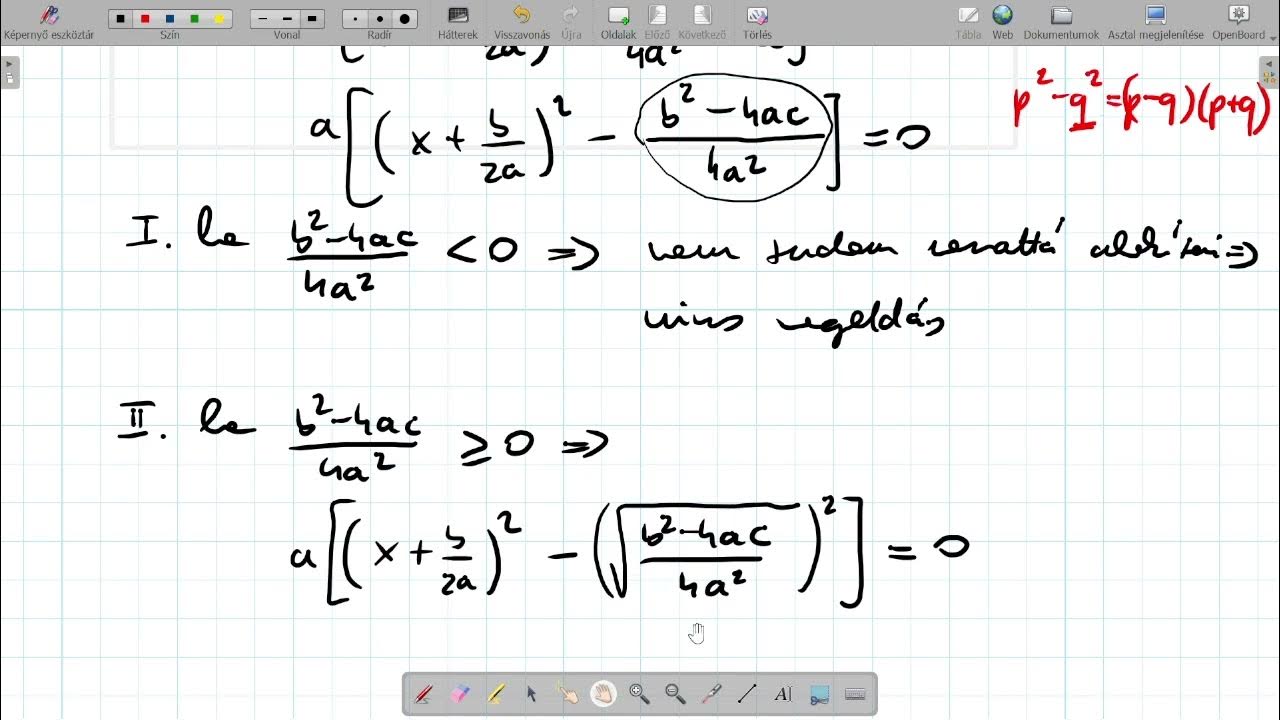 Képernyő eszköztár Szín Vonal Radír Hátterek Visszavonás Újra Oldalak Előző Következő Törlés Tábla Web Dokumentumok Asztal megjelenítése OpenBoard
2a) 4a² ]
p² - q² = (p-q)(p+q)
a[(x + b/2a)² - (b² - 4ac)/4a²] = 0
I. ha (b² - 4ac)/4a² < 0 ⇒ nem tudom szorzattá alakítani ⇒
nincs megoldás
II. ha (b² - 4ac)/4a² ≥ 0 ⇒
a[(x + b/2a)² - (√((b² - 4ac)/4a²))²] = 0